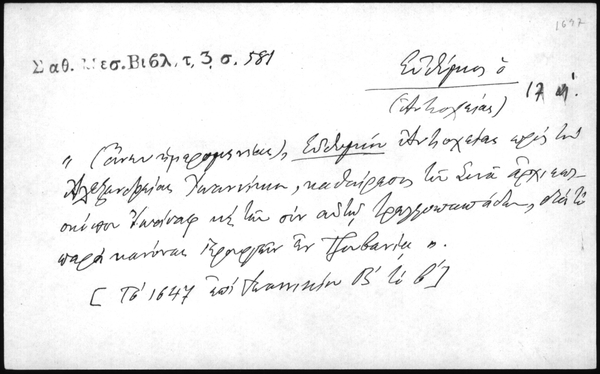 1647
Σαθ. Μεσ. Βιβλ. τ, 3, σ. 581
Εὐθύμιος ὁ
(Ἀντιοχείας)
17 αἰ.
" (ἄνευ ἡμερομηνίας), Εὐθυμίου Ἀντιοχείας πρὸς τὸν
Ἀλεξανδρείας Ἰωαννίκιον, καθαίρεσις τοῦ Σινᾶ ἀρχιεπι-
σκόπου Ἰωάσαφ κὲ τῶν σὺν αὐτῷ διὰ τὸ
παρὰ κανόνας ἱερουργεῖν ἐν ".
[Τῷ 1647 ἐπὶ Ἰωαννικίου Β' τὸ β']